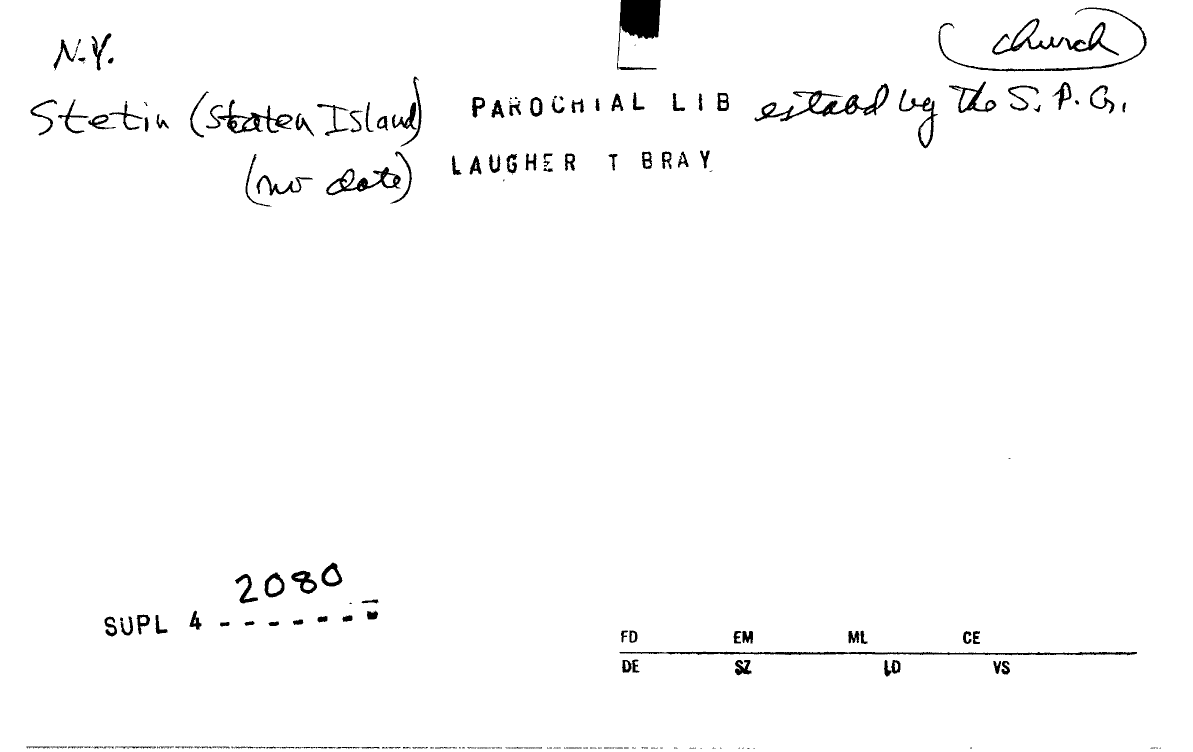 church
N.Y.
Stetin (Staten Island) PAROCHIAL LIB estabd by the S.P.G.
(no date) LAUGHER T BRAY
2080
SUPL 4 - - - - - - -
FD EM ML CE
DE SZ LD VS